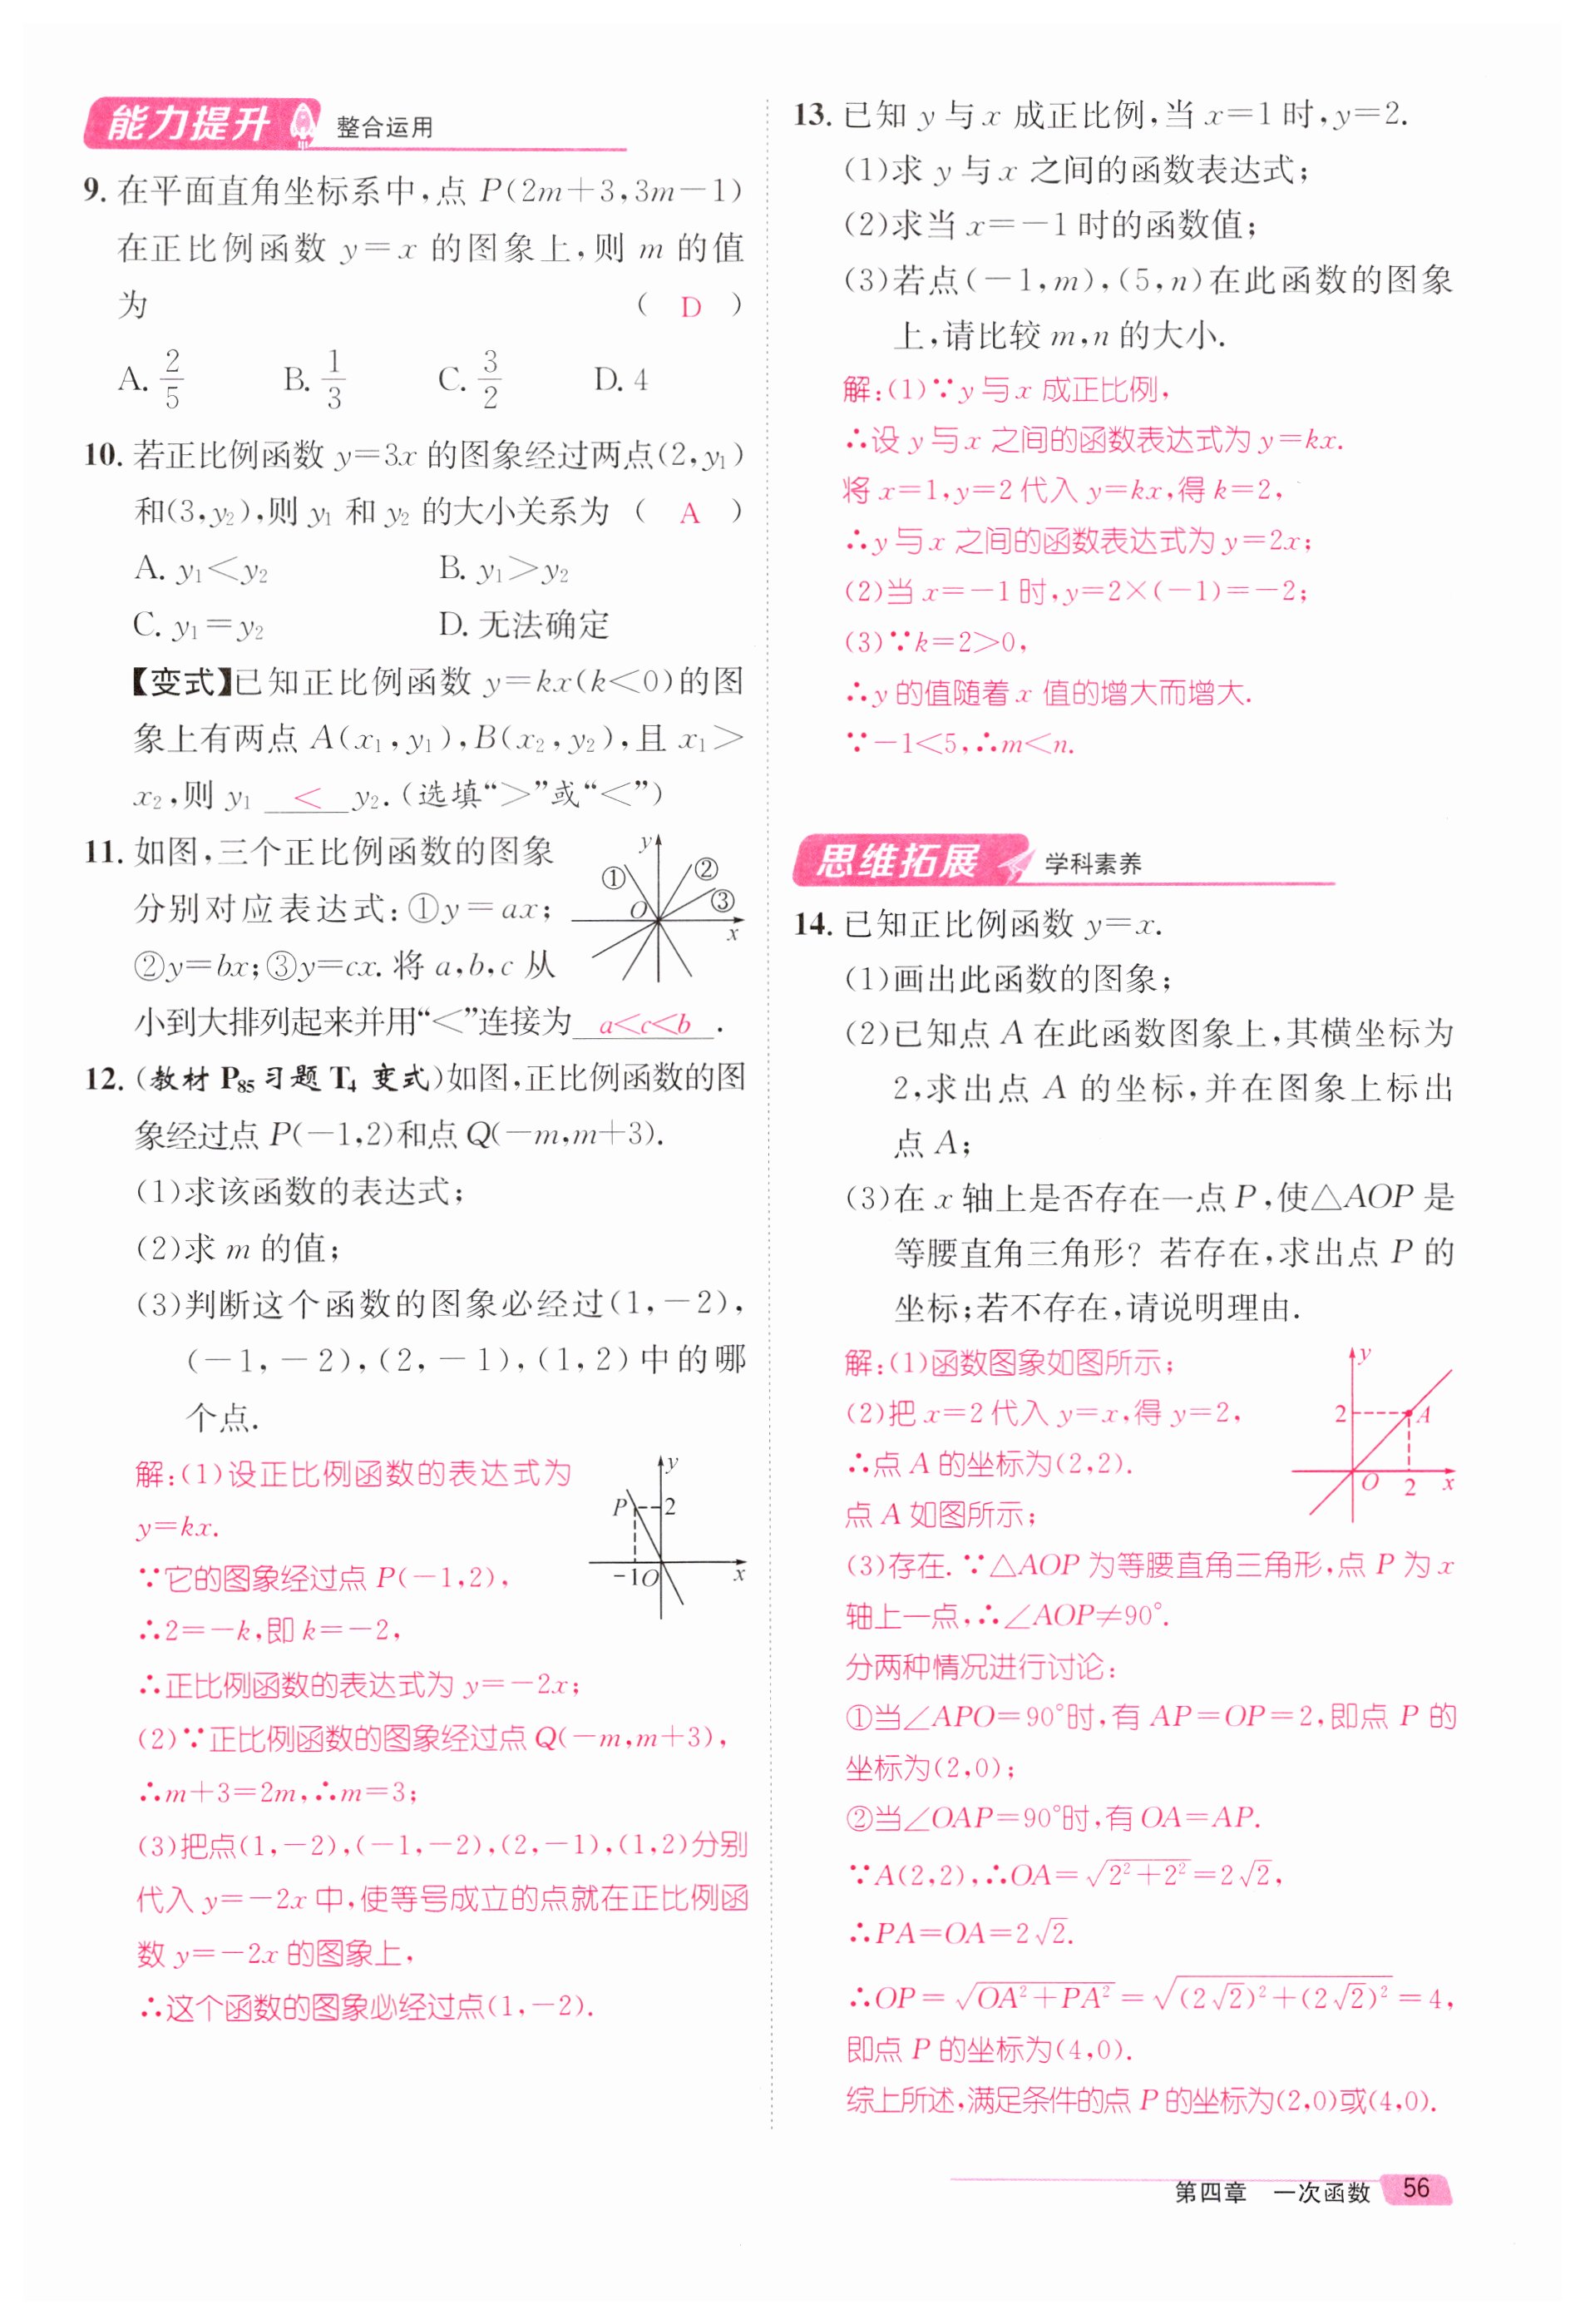 能力提升 整合运用
9. 在平面直角坐标系中,点 P(2m+3,3m-1)
在正比例函数 y=x 的图象上,则 m 的值
为 ( D )
A. 2/5 B. 1/3 C. 3/2 D. 4
10. 若正比例函数 y=3x 的图象经过两点(2,y₁)
和(3,y₂),则 y₁ 和 y₂ 的大小关系为 ( A )
A. y₁<y₂ B. y₁>y₂
C. y₁=y₂ D. 无法确定
【变式】已知正比例函数 y=kx(k<0)的图
象上有两点 A(x₁,y₁),B(x₂,y₂),且 x₁>
x₂,则 y₁ < y₂.(选填“>”或“<”)
11. 如图,三个正比例函数的图象
分别对应表达式:①y=ax;
②y=bx;③y=cx. 将 a,b,c 从
小到大排列起来并用“<”连接为 a<c<b .
y
① ②
③
O
x
12. (教材 P₈₅ 习题 T₄ 变式)如图,正比例函数的图
象经过点 P(-1,2)和点 Q(-m,m+3).
(1)求该函数的表达式;
(2)求 m 的值;
(3)判断这个函数的图象必经过(1,-2),
(-1,-2),(2,-1),(1,2)中的哪
个点.
解:(1)设正比例函数的表达式为
y=kx.
∵它的图象经过点 P(-1,2),
∴2=-k,即 k=-2,
∴正比例函数的表达式为 y=-2x;
y
P 2
-1 O x
(2)∵正比例函数的图象经过点 Q(-m,m+3),
∴m+3=2m,∴m=3;
(3)把点(1,-2),(-1,-2),(2,-1),(1,2)分别
代入 y=-2x 中,使等号成立的点就在正比例函
数 y=-2x 的图象上,
∴这个函数的图象必经过点(1,-2).
13. 已知 y 与 x 成正比例,当 x=1 时,y=2.
(1)求 y 与 x 之间的函数表达式;
(2)求当 x=-1 时的函数值;
(3)若点(-1,m),(5,n)在此函数的图象
上,请比较 m,n 的大小.
解:(1)∵y 与 x 成正比例,
∴设 y 与 x 之间的函数表达式为 y=kx.
将 x=1,y=2 代入 y=kx,得 k=2,
∴y 与 x 之间的函数表达式为 y=2x;
(2)当 x=-1 时,y=2×(-1)=-2;
(3)∵k=2>0,
∴y 的值随着 x 值的增大而增大.
∵-1<5,∴m<n.
思维拓展 学科素养
14. 已知正比例函数 y=x.
(1)画出此函数的图象;
(2)已知点 A 在此函数图象上,其横坐标为
2,求出点 A 的坐标,并在图象上标出
点 A;
(3)在 x 轴上是否存在一点 P,使△AOP 是
等腰直角三角形? 若存在,求出点 P 的
坐标;若不存在,请说明理由.
解:(1)函数图象如图所示;
(2)把 x=2 代入 y=x,得 y=2,
∴点 A 的坐标为(2,2).
点 A 如图所示;
y
2 A
O 2 x
(3)存在. ∵△AOP 为等腰直角三角形,点 P 为 x
轴上一点,∴∠AOP≠90°.
分两种情况进行讨论:
①当∠APO=90°时,有 AP=OP=2,即点 P 的
坐标为(2,0);
②当∠OAP=90°时,有 OA=AP.
∵A(2,2),∴OA=√(2²+2²)=2√2,
∴PA=OA=2√2.
∴OP=√(OA²+PA²)=√((2√2)²+(2√2)²)=4,
即点 P 的坐标为(4,0).
综上所述,满足条件的点 P 的坐标为(2,0)或(4,0).
第四章 一次函数 56